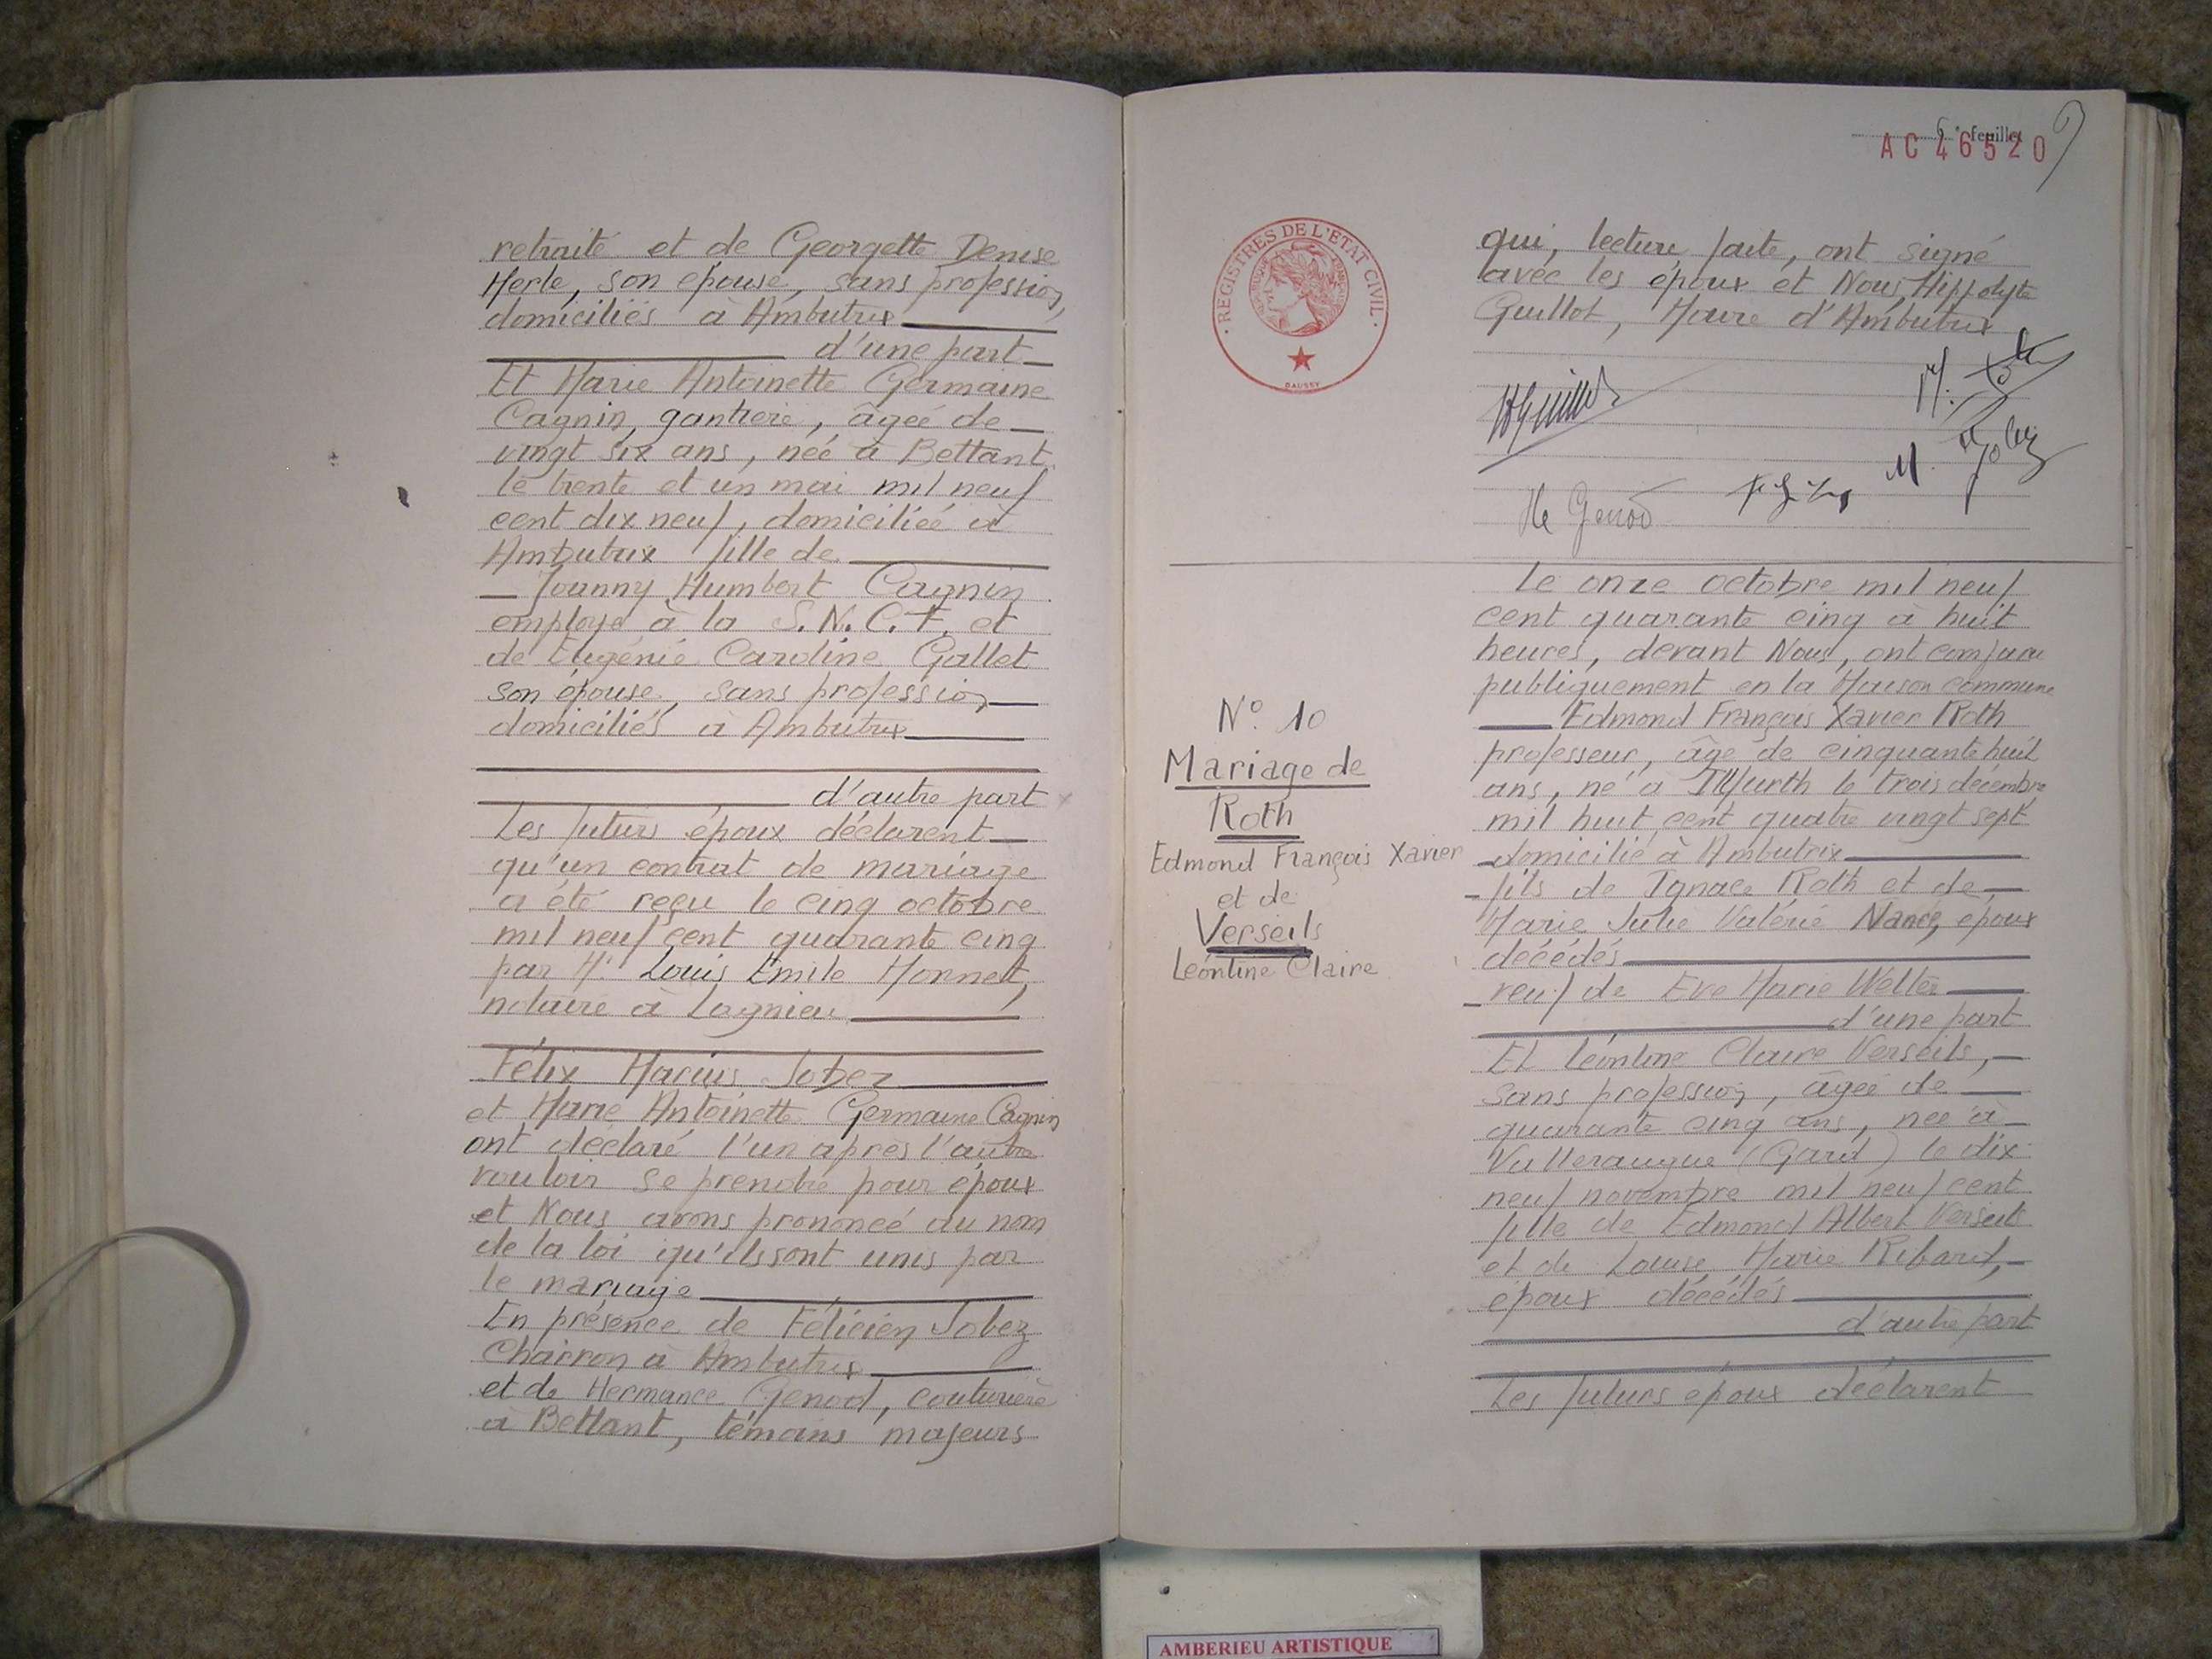 retraité et de Georgette Denise
Merle, son épouse, sans profession,
domiciliés à Ambutrix
d'une part
Et Marie Antoinette Germaine
Cagnin, gantière, âgée de
vingt six ans, née à Bettant
le trente et un mai mil neuf
cent dix neuf, domiciliée à
Ambutrix fille de
Joanny Humbert Cagnin
employé à la S.N.C.F. et
de Eugénie Caroline Gallet
son épouse, sans profession
domiciliés à Ambutrix
d'autre part
Les futurs époux déclarent
qu'un contrat de mariage
a été reçu le cinq octobre
mil neuf cent quarante cinq
par Me Louis Emile Monnet,
notaire à Lagnieu
Félix Marius Jobez
et Marie Antoinette Germaine Cagnin
ont déclaré l'un après l'autre
vouloir se prendre pour époux
et Nous avons prononcé au nom
de la loi qu'ils sont unis par
le mariage
En présence de Félicien Jobez
Charron à Ambutrix
et de Hermance Genod, couturière
à Bettant, témoins majeurs
6e feuillet
AC 46520
REGISTRES DE L'ÉTAT CIVIL
DAUSSY
qui, lecture faite, ont signé
avec les époux et Nous, Hippolyte
Guillot, Maire d'Ambutrix
HGuillot
M. Jobez
He Genod
N° 10
Mariage de
Roth
Edmond François Xavier
et de
Verseils
Léontine Claire
Le onze octobre mil neuf
cent quarante cinq à huit
heures, devant Nous, ont comparu
publiquement en la Maison commune
Edmond François Xavier Roth
professeur, âgé de cinquante huit
ans, né à Illfurth le trois décembre
mil huit cent quatre vingt sept
domicilié à Ambutrix
fils de Ignace Roth et de
Marie Julie Valérie Nancy, époux
décédés
veuf de Eve Marie Welter
d'une part
Et Léontine Claire Verseils,
sans profession, âgée de
quarante cinq ans, née à
Valleraugue (Gard) le dix
neuf novembre mil neuf cent
fille de Edmond Albert Verseils
et de Louise Marie Ribard,
époux décédés
d'autre part
Les futurs époux déclarent
AMBERIEU ARTISTIQUE